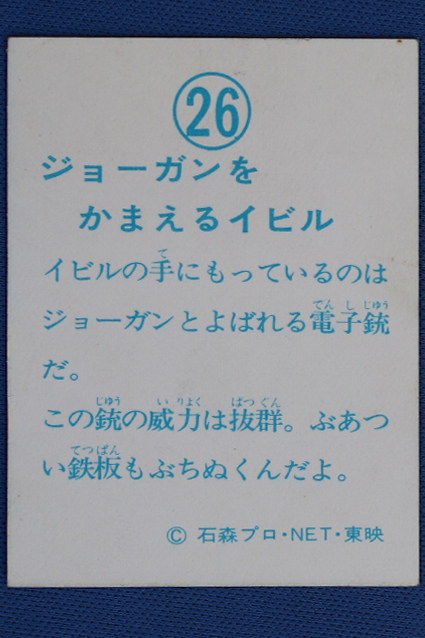 26
ジョーガンを
かまえるイビル
イビルの手にもっているのは
ジョーガンとよばれる電子銃
だ。
この銃の威力は抜群。ぶあつ
い鉄板もぶちぬくんだよ。
© 石森プロ・NET・東映